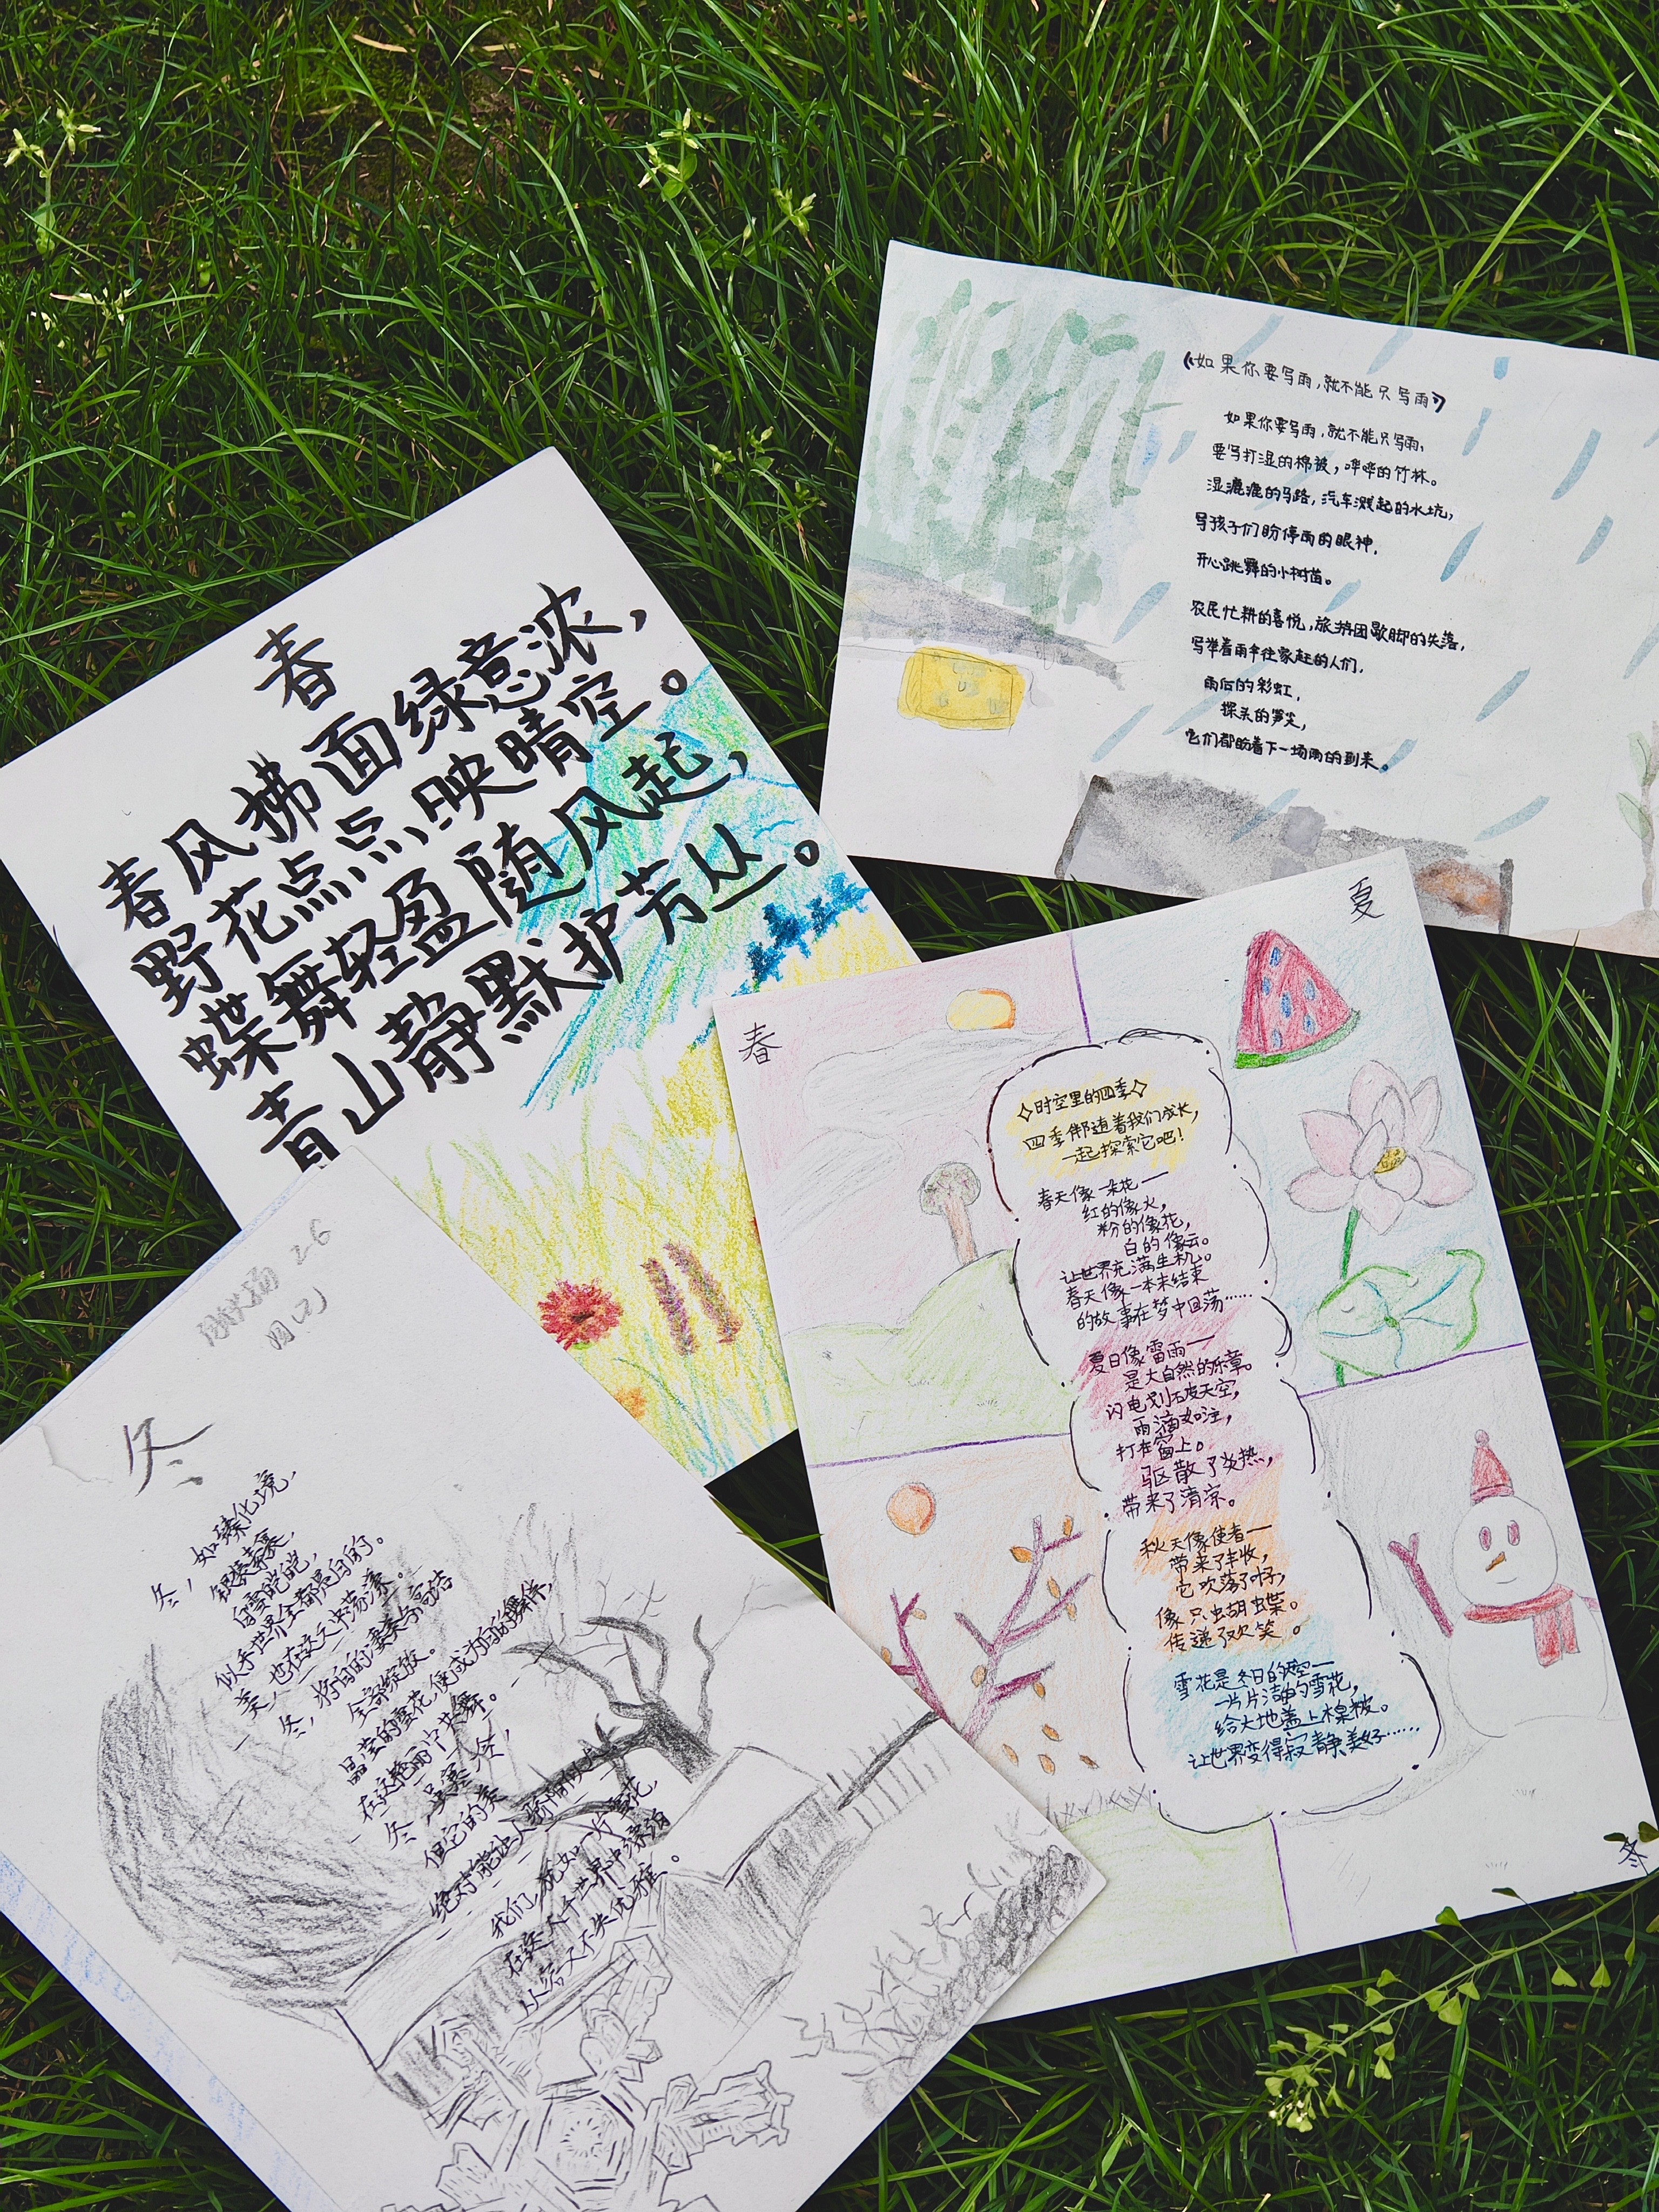 《如果你要写雨,就不能只写雨》
如果你要写雨,就不能只写雨,
要写打湿的棉被,哗哗的竹林。
湿漉漉的马路,汽车溅起的水坑,
写孩子们盼停雨的眼神,
开心跳舞的小树苗。
农民忙耕的喜悦,旅游团歇脚的失落,
写举着雨伞往家赶的人们,
雨后的彩虹,
探头的笋尖,
它们都盼着下一场雨的到来。
春
春风拂面绿意浓,
野花点点映晴空。
蝶舞轻盈随风起,
青山静默护芳丛。
春
夏
冬
◇时空里的四季◇
四季伴随着我们成长,
一起探索它吧!
春天像一朵花—
红的像火,
粉的像花,
白的像云。
让世界充满生机。
春天像一本未结束
的故事在梦中回荡……
夏日像雷雨—
是大自然的乐章。
闪电划破天空,
雨滴如注,
打在窗上。
驱散了炎热,
带来了清凉。
秋天像使者—
带来了丰收,
它吹落了叶子,
像只蝴蝶。
传递了欢笑。
雪花是冬日的
一片片洁白的雪花,
给大地盖上棉被。
让世界变得寂静、美好……
2-6
冬
冬,如臻化境,
银装素裹,
白雪皑皑,
似乎世界全都是白的。
美,也在这天地荡漾。
冬,将自的凄美与高洁
全部绽放。
晶莹的雪花,便成为的舞伴,
在这艳丽中共舞。
冬,虽寒,
但它的美
绝对能让人
我们,就如一片雪花,
在这大千世界中漂泊
从容又不失优雅。